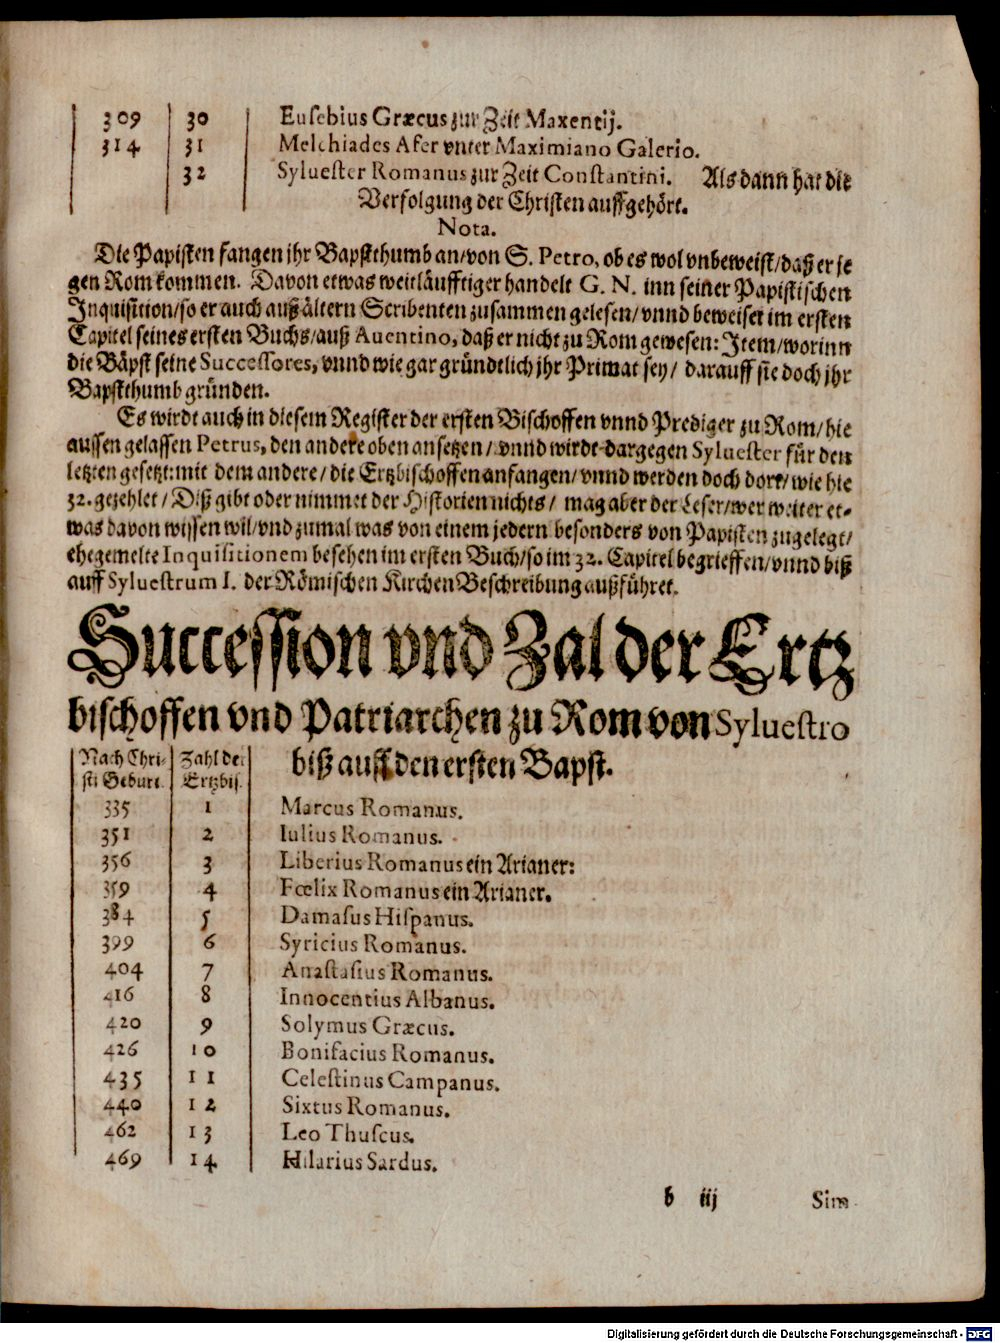 309 30 Eusebius Græcus zur Zeit Maxentij.
314 31 Melchiades Afer vnter Maximiano Galerio.
32 Syluester Romanus zur Zeit Constantini. Als dann hat die
Verfolgung der Christen auffgehört.
Nota.
Die Papisten fangen jhr Bapstthumb an/von S. Petro, ob es wol vnbeweist/daß er je
gen Rom kommen. Davon etwas weitläufftiger handelt G. N. inn seiner Papistischen
Inquisition/so er auch auß ältern Scribenten zusammen gelesen/vnnd beweiset im ersten
Capitel seines ersten Buchs/auß Auentino, daß er nicht zu Rom gewesen: Item/worinn
die Bäpst seine Successores, vnnd wie gar gründtlich jhr Primat sey/ darauff sie doch jhr
Bapstthumb gründen.
Es wirdt auch in diesem Register der ersten Bischoffen vnnd Prediger zu Rom/hie
aussen gelassen Petrus, den andere oben ansetzen/vnnd wirdt dargegen Syluester für den
letzten gesetzt: mit dem andere/die Ertzbischoffen anfangen/vnnd werden doch dort/wie hie
32. gezehlet/Diß gibt oder nimmet der Historien nichts/ mag aber der Leser/wer weiter et-
was davon wissen wil/vnd zumal was von einem jedern besonders von Papisten zugelegt/
ehegemelte Inquisitionem besehen im ersten Buch/so im 32. Capitel begrieffen/vnnd biß
auff Syluestrum I. der Römischen Kirchen Beschreibung außführet.
Succession vnd Zal der Ertz
bischoffen vnd Patriarchen zu Rom von Syluestro
biß auff den ersten Bapst.
Nach Chri- Zahl der
sti Geburt. Ertzbis.
335 1 Marcus Romanus.
351 2 Iulius Romanus.
356 3 Liberius Romanus ein Arianer:
359 4 Fœlix Romanus ein Arianer.
384 5 Damasus Hispanus.
399 6 Syricius Romanus.
404 7 Anastasius Romanus.
416 8 Innocentius Albanus.
420 9 Solymus Græcus.
426 10 Bonifacius Romanus.
435 11 Celestinus Campanus.
440 12 Sixtus Romanus.
462 13 Leo Thuscus.
469 14 Hilarius Sardus.
b iij Sim-
Digitalisierung gefördert durch die Deutsche Forschungsgemeinschaft - DFG